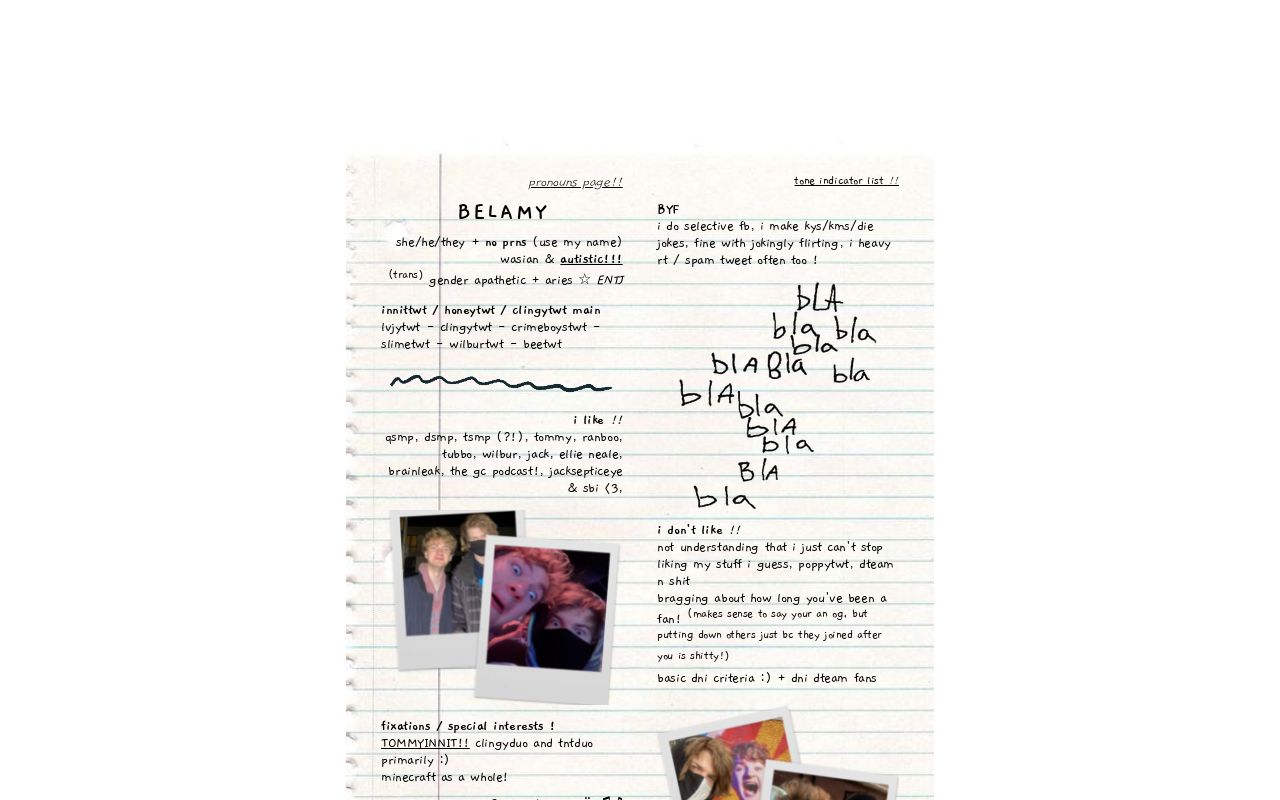 pronouns page!!
BELAMY
she/he/they + no prns (use my name)
wasian & autistic!!!
(trans) gender apathetic + aries ☆ ENTJ
innittwt / honeytwt / clingytwt main
lvjytwt - clingytwt - crimeboystwt -
slimetwt - wilburtwt - beetwt
i like !!
qsmp, dsmp, tsmp (?!), tommy, ranboo,
tubbo, wilbur, jack, ellie neale,
brainleak, the gc podcast!, jacksepticeye
& sbi <3,
fixations / special interests !
TOMMYINNIT!! clingyduo and tntduo
primarily :)
minecraft as a whole!
tone indicator list !!
BYF
i do selective fb, i make kys/kms/die
jokes, fine with jokingly flirting, i heavy
rt / spam tweet often too !
bLA
bla bla
bla
blA Bla bla
blA bla
blA
bla
BlA
bla
i don't like !!
not understanding that i just can't stop
liking my stuff i guess, poppytwt, dteam
n shit
bragging about how long you've been a
fan! (makes sense to say your an og, but
putting down others just bc they joined after
you is shitty!)
basic dni criteria :) + dni dteam fans